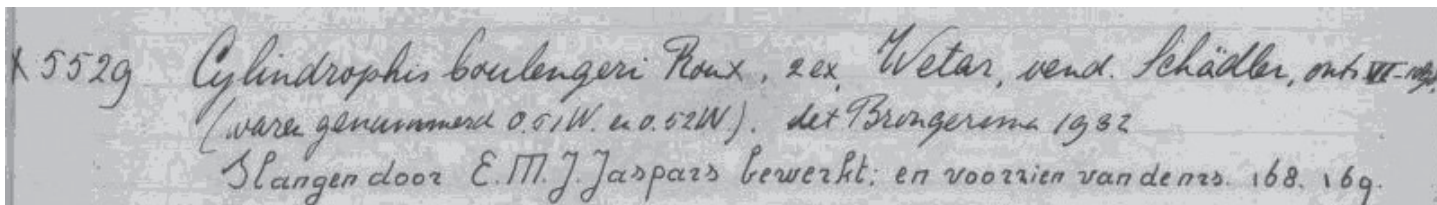 X 5529 Cylindrophis boulengeri Roux, 2 ex, Wetar, vend. Schädler, ontv. VI-
(waren genummerd 0.51W. en 0.52W). det Brongersma 1932
Slangen door E.M.J. Jaspars bewerkt; en voorzien van de nrs. 168. 169.